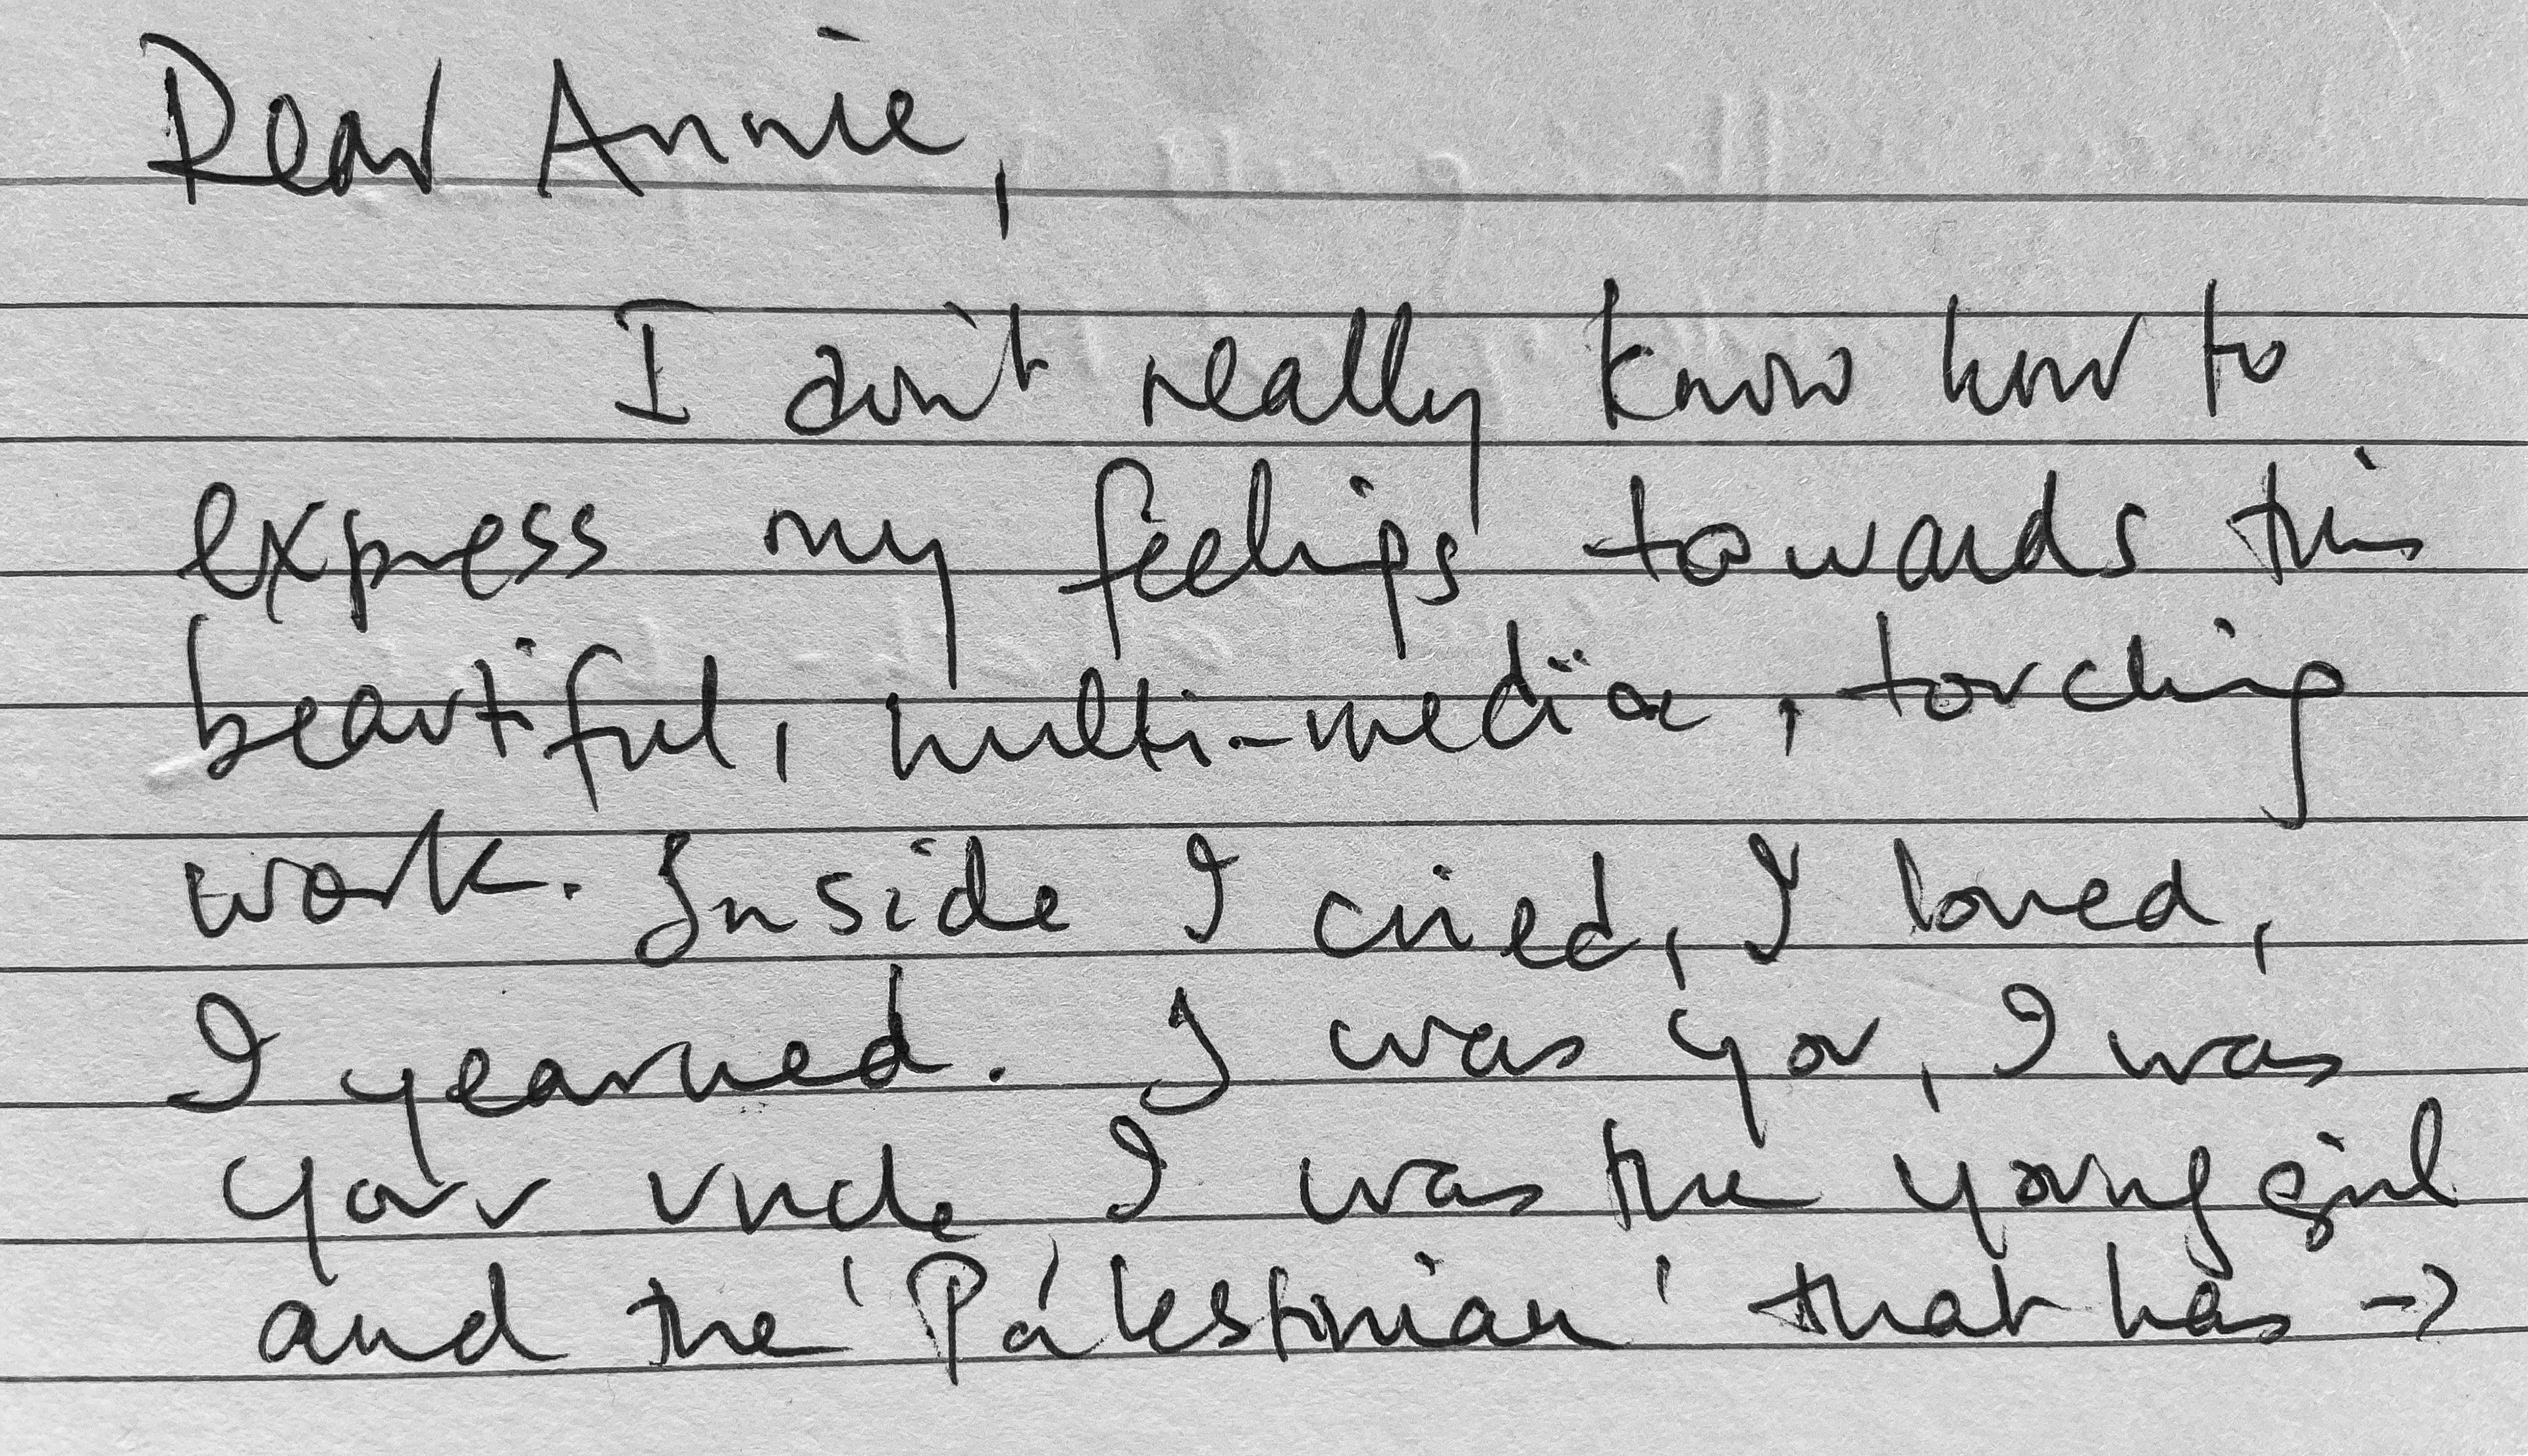 Dear Annie,
I don't really know how to
express my feelings towards this
beautiful, multi-media, touching
work. Inside I cried, I loved,
I yearned. I was you, I was
your uncle I was the young girl
and the 'Palestinian' that has →